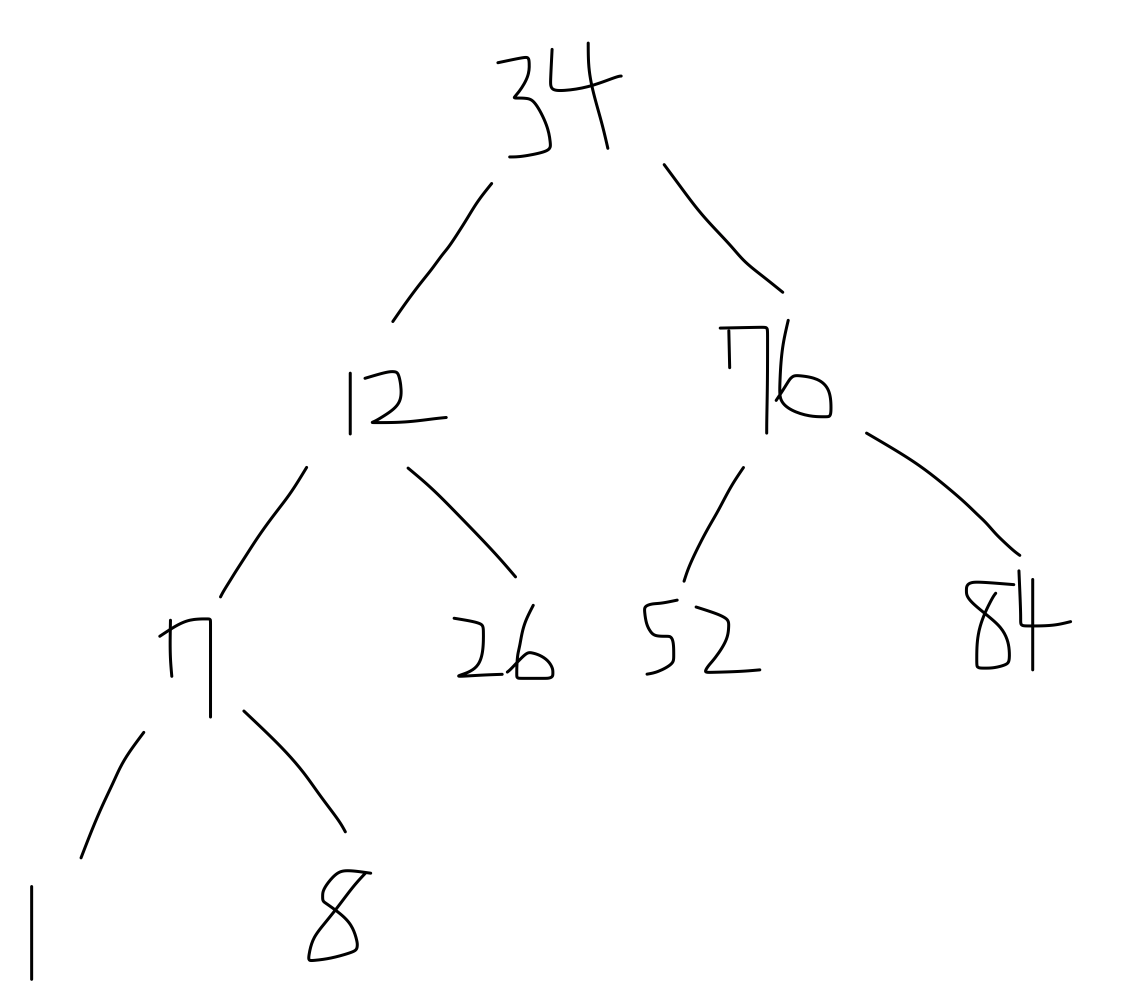 34
12 76
7 26 52 84
1 8